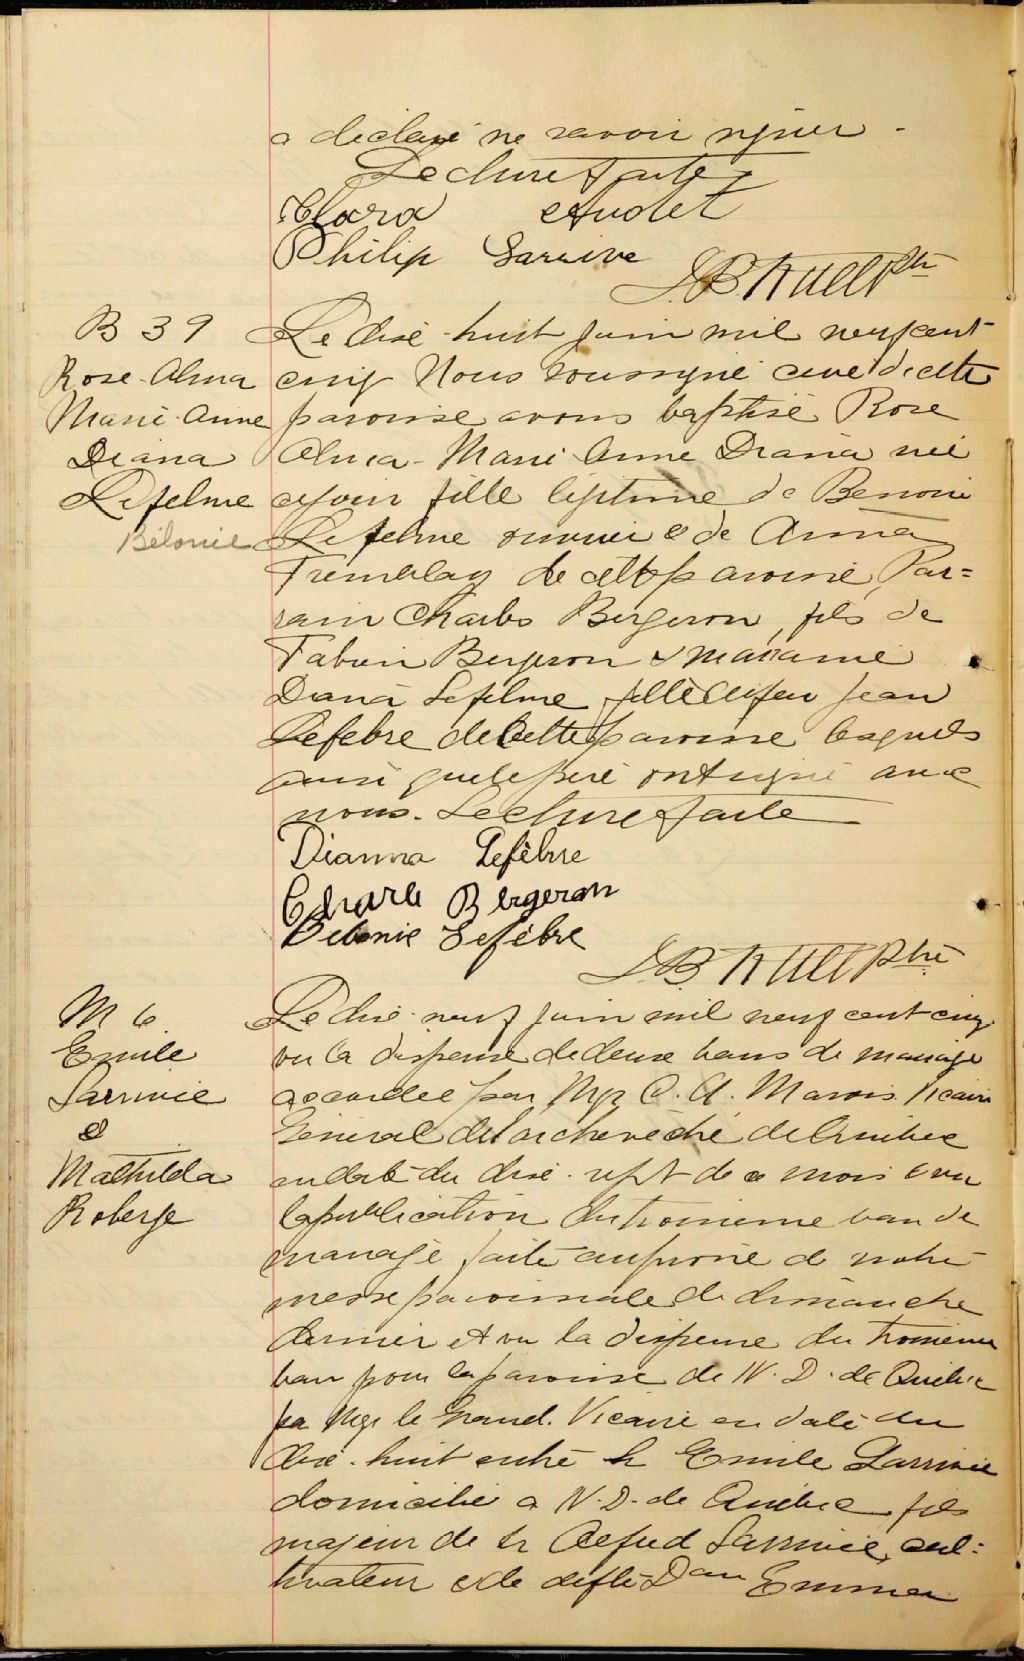 a déclaré ne savoir signer.
Lecture faite
Clara Audet
Philip Larrive
Ptre
B 39
Rose-Alma
Marie-Anne
Diana
Lefebvre
Bélonie
Le dix-huit juin mil neuf cent
cinq Nous soussigné curé de cette
paroisse avons baptisé Rose
Alma-Marie Anne Diana née
ce jour fille légitime de Benonie
Lefebvre ouvrier & de Anna
Tremblay de cette paroisse, Par=
rain Charles Bergeron, fils de
Fabien Bergeron & marraine
Diana Lefebvre fille de feu Jean
Lefebre de cette paroisse lesquels
ainsi que le père ont signé avec
nous. Lecture faite
Dianna Lefèbvre
Charle Bergeron
Belonie Lefèbre
Ptre
M 6
Emile
Larrivée
&
Mathilda
Roberge
Le dix-neuf juin mil neuf cent cinq
vu la dispense de deux bans de mariage
accordée par Mgr C. A. Marois Vicaire
Général de l'archevêché de Québec
en date du dix-sept de ce mois & vu
la publication du troisième ban de
mariage faite au prône de notre
messe paroissiale de dimanche
dernier et vu la dispense du troisième
ban pour la paroisse de N.D. de Québec
par Mgr le Grand-Vicaire en date du
dix-huit entre Sr Emile Larrivée
domicilié à N.D. de Québec fils
majeur de Sr Alfred Larrivée, cul=
tivateur & de défte Dam Emma